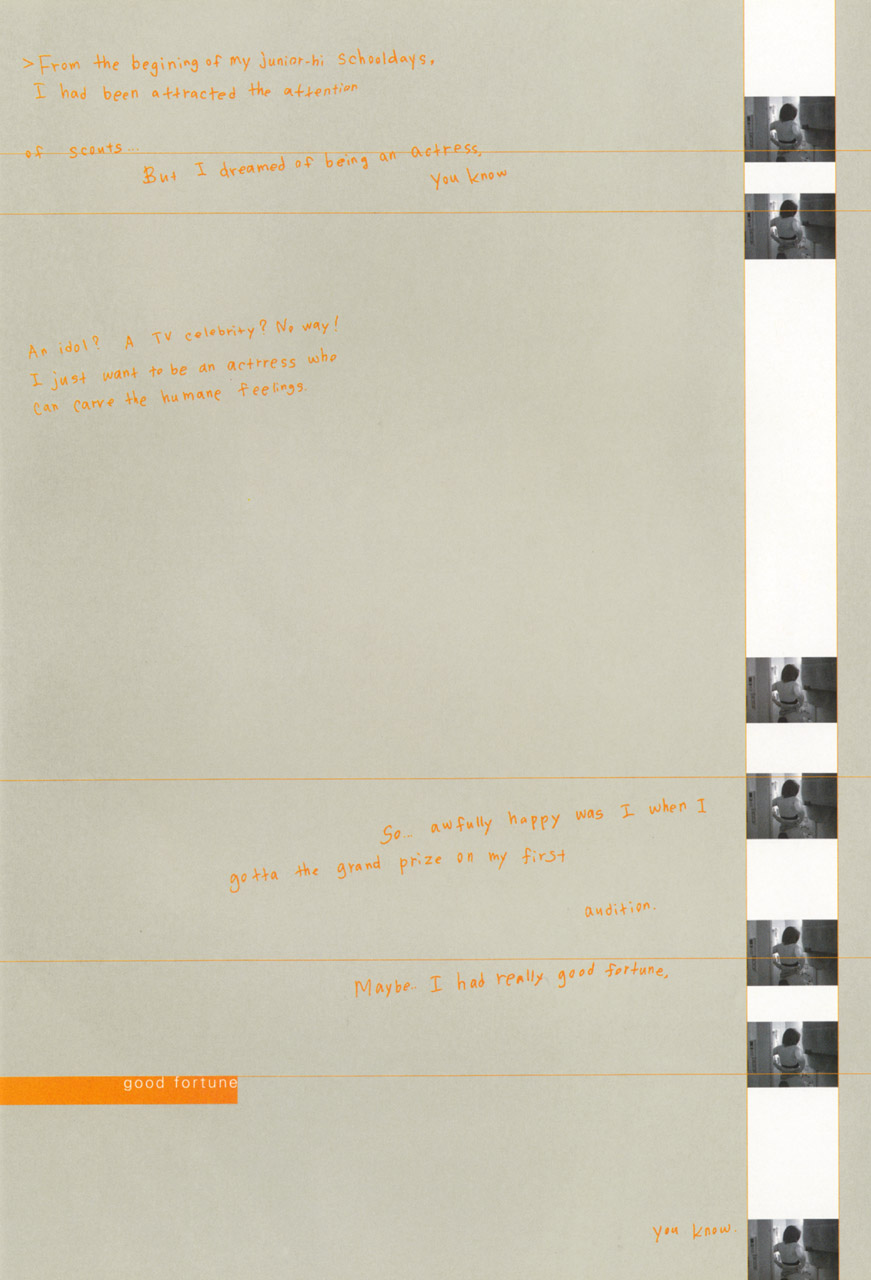 >From the begining of my junior-hi schooldays,
I had been attracted the attention
of scouts...
But I dreamed of being an actress,
you know
An idol? A TV celebrity? No way!
I just want to be an actrress who
can carve the humane feelings.
So... awfully happy was I when I
gotta the grand prize on my first
audition.
Maybe.. I had really good fortune,
good fortune
you know.